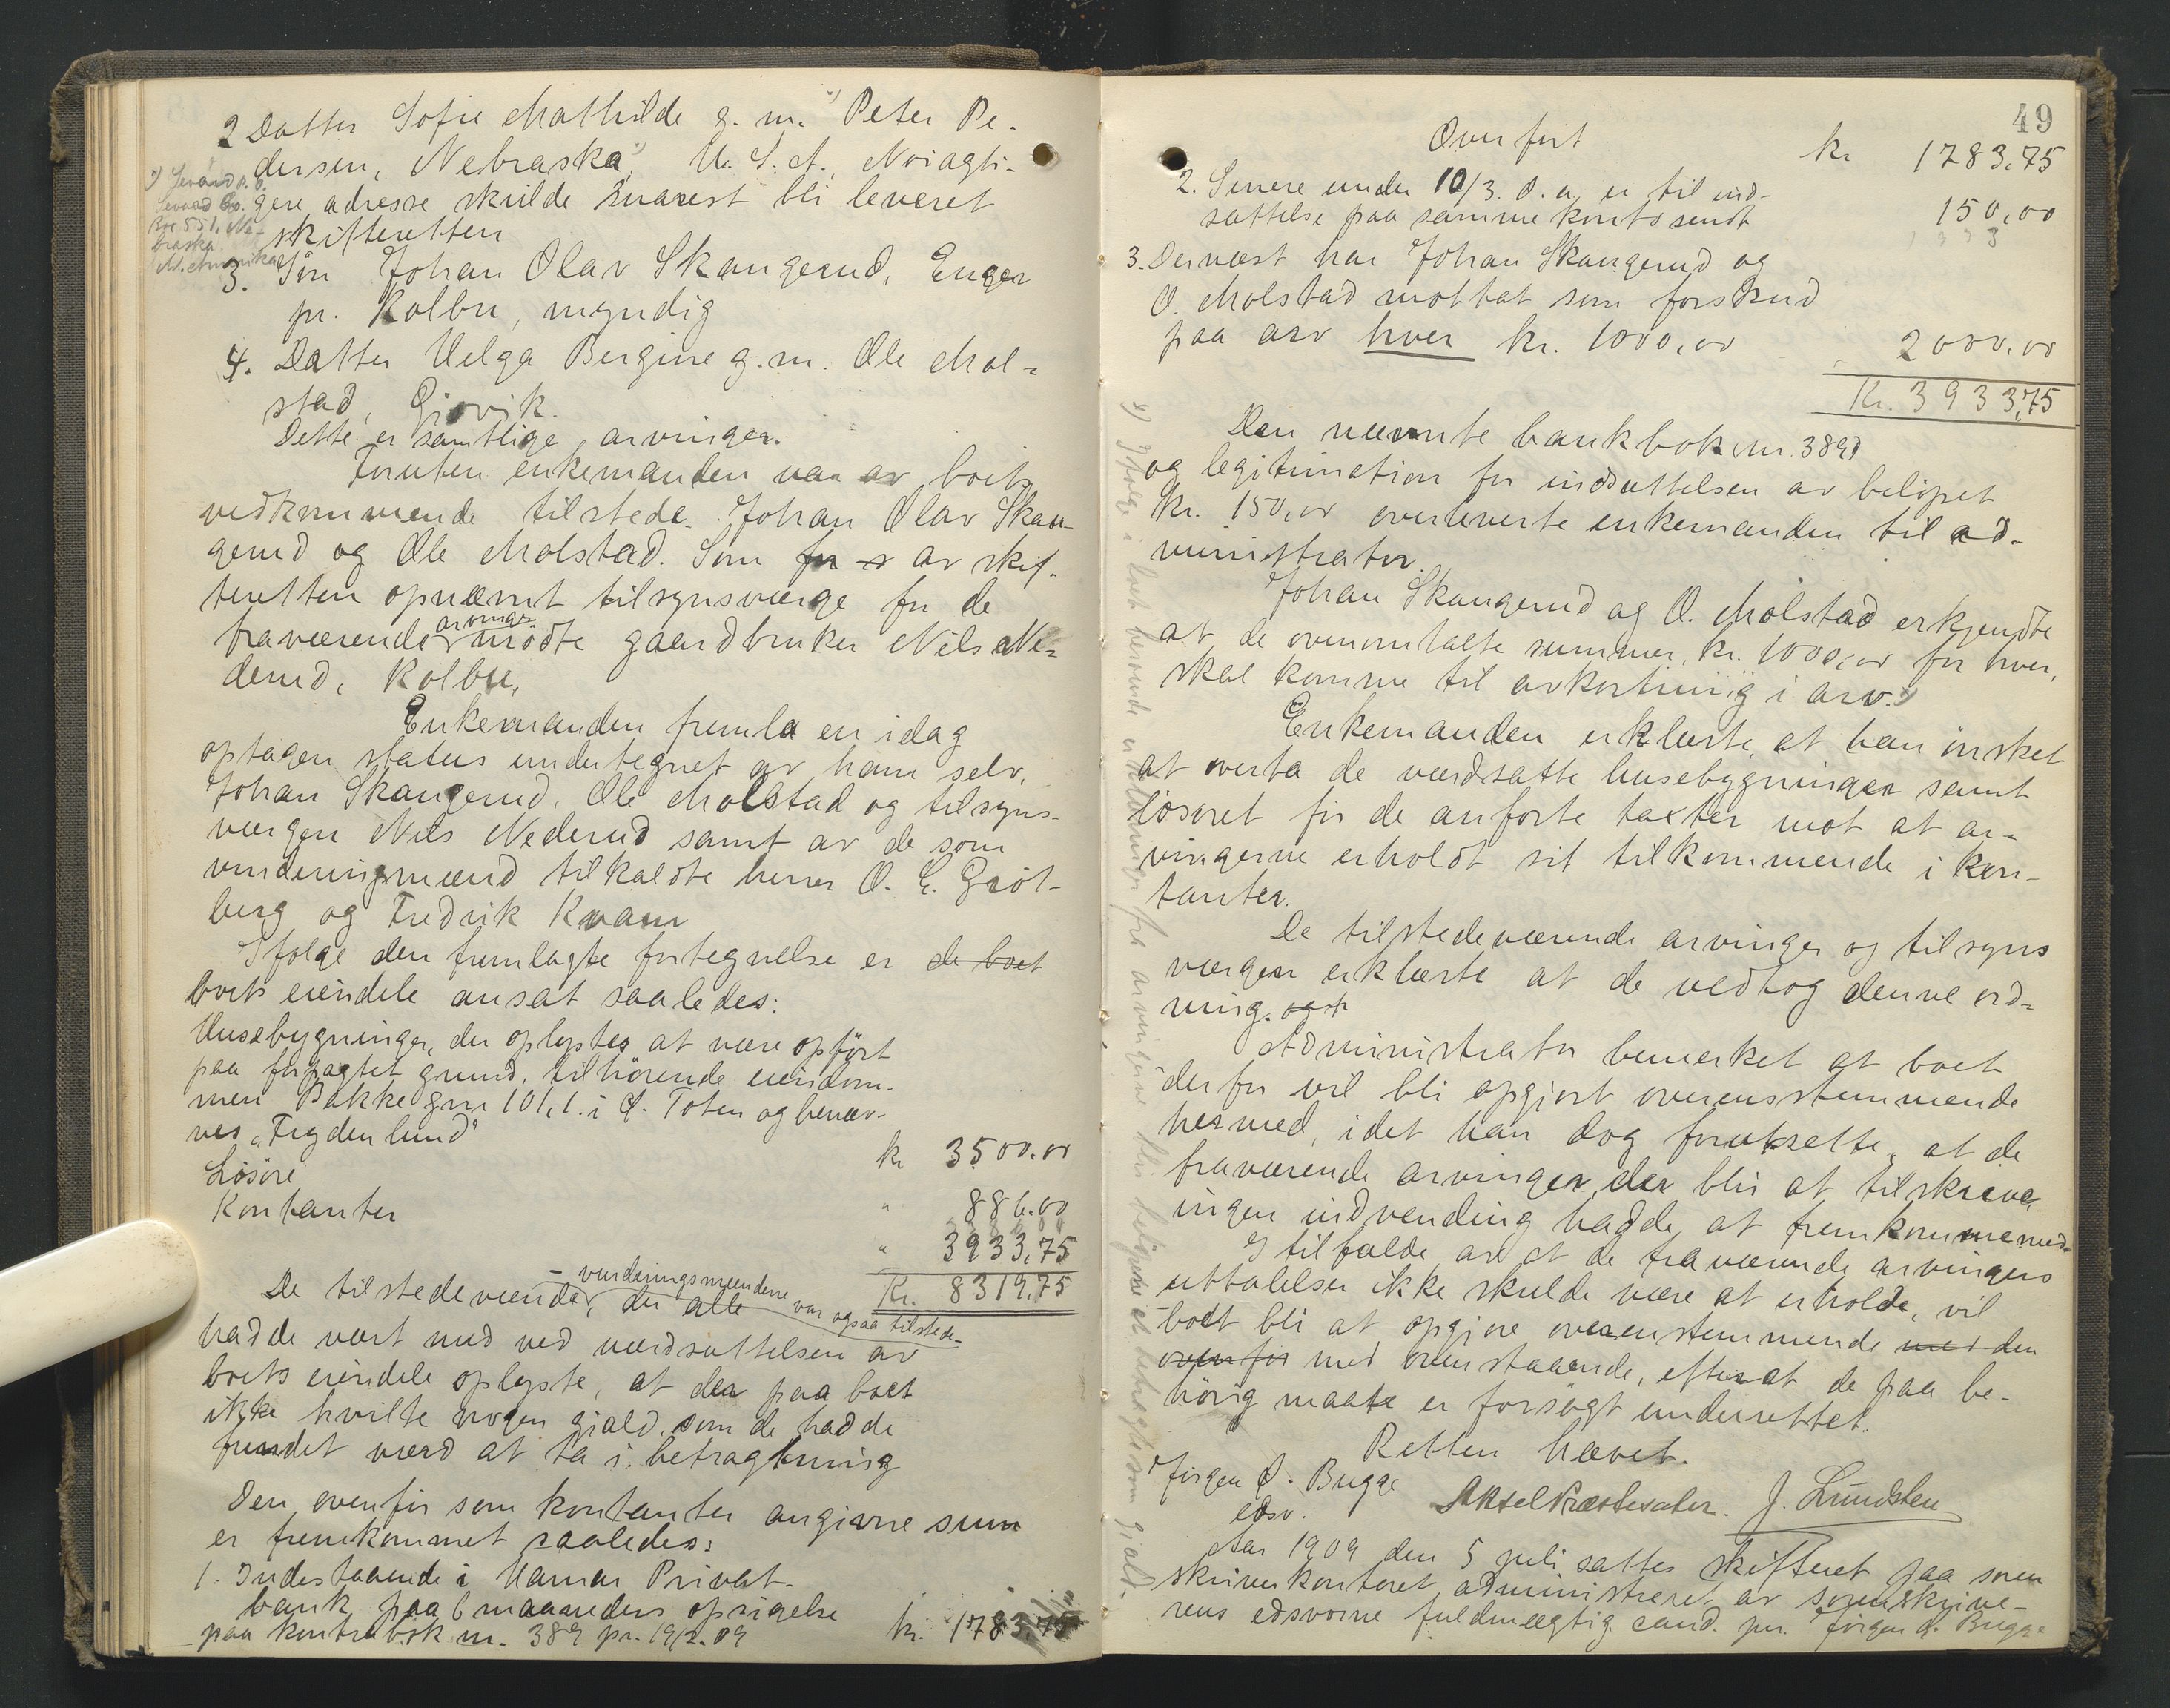 2 Datter Sofie Mathilde g. m. x) Peter Pe-
dersen, Nebraska, U. S. A. Nöiagti-
gere adresse skulde snarest bli leveret
skifteretten
x) Seward
Seward Co.
Box 551, Ne-
braska
N. Amerika
3. Sön Johan Olav Skaugerud, Enger
pr. Kolbu, myndig
4. Datter Helga Bergine g. m. Ole Mol-
stad, Gjøvik.
Dette er samtlige arvinger.
Foruten enkemanden var av boets
vedkommende tilstede Johan Olav Skau-
gerud og Ole Molstad. Som for s av skif-
teretten opnævnt tilsynsværge for de
fraværende arvinger mødte gaardbruker Nils Ne-
derud, Kolbu,
Enkemanden fremla en idag
optagen status undertegnet av ham selv,
Johan Skaugerud, Ole Molstad og tilsyns-
værgen Nils Nederud samt av de som
vurderingsmænd tilkaldte herrer O. E. Gröt-
berg og Fredrik Kvam
Ifølge den fremlagte fortegnelse er de boet
boets eiendele ansat saaledes:
Husebygninger, der oplystes at være opført
paa forpagtet grund, tilhörende eiendom-
men Bakke gnr 101, 1. i Ø. Toten og benæv-
nes „Frydenlund“
kr 3500.00
Lösöre
" 886.00
Kontanter
" 3933,75
Kr. 8319,75
De tilstedeværende, der alle
- vurderingsmændene var ogsaa tilstede -
hadde vært med ved værdsættelsen av
boets eiendele oplyste, at der paa boet
ikke hvilte nogen gjæld, som de hadde
fundet værd at ta i betragtning
Den ovenfor som kontanter angivne sum
er fremkommet saaledes:
1. Indestaaende i Hamar Privat-
bank paa 6 maaneders opsigelse
paa kontrabok nr. 389 pr. 19/2.09 kr. 1783,75
49
Overført kr 1783,75
2. Senere under 10/3. d. a. er til ind-
sættelse paa samme konto sendt 150,00
3. Dernæst har Johan Skaugerud og
O. Molstad mottat som forskud
paa arv hver kr. 1000,00 2000,00
Kr. 3933,75
Den nævnte bankbok nr. 389
og legitimation for indsættelsen av beløpet
kr. 150,00 overleverte enkemanden til ad-
ministrator.
Johan Skaugerud og O. Molstad erkjendte
at de ovenomtalte summer, kr. 1000,00 for hver,
skal komme til avkortning i arv. x)
Enkemanden erklærte, at han önsket
at overta de værdsatte husebygninger samt
lösöret for de anførte taxter mot at ar-
vingerne erholdt sit tilkommende i kon-
tanter.
De tilstedeværende arvinger og tilsyns
værgen erklærte at de vedtog denne ord-
ning. og
Administrator bemerket at boet
derfor vil bli opgjort overensstemmende
hermed, idet han dog forutsatte, at de
fraværende arvinger, der blir at tilskrive
ingen indvending hadde at fremkomme med
I tilfælde av at de fraværende arvingers
uttalelser ikke skulde være at erholde, vil
boet bli at opgjøre overenstemmende med den
ovenfor med ovenstaaende, efterat de paa be-
hörig maate er forsøgt underrettet.
Retten hævet.
Jørgen Ø. Bugge
edsv.
Aksel Præstesæter. J. Lundsten
Aar 1909 den 5 juli sattes skifteret paa soren
skriverkontoret, administreret av sorenskrive-
rens edsvorne fuldmægtig cand. jur. Jørgen Ø. Bugge
x) Ifølge i boet beroende erklæringer fra arvingerne blir beløpene at betragte som gjæld.